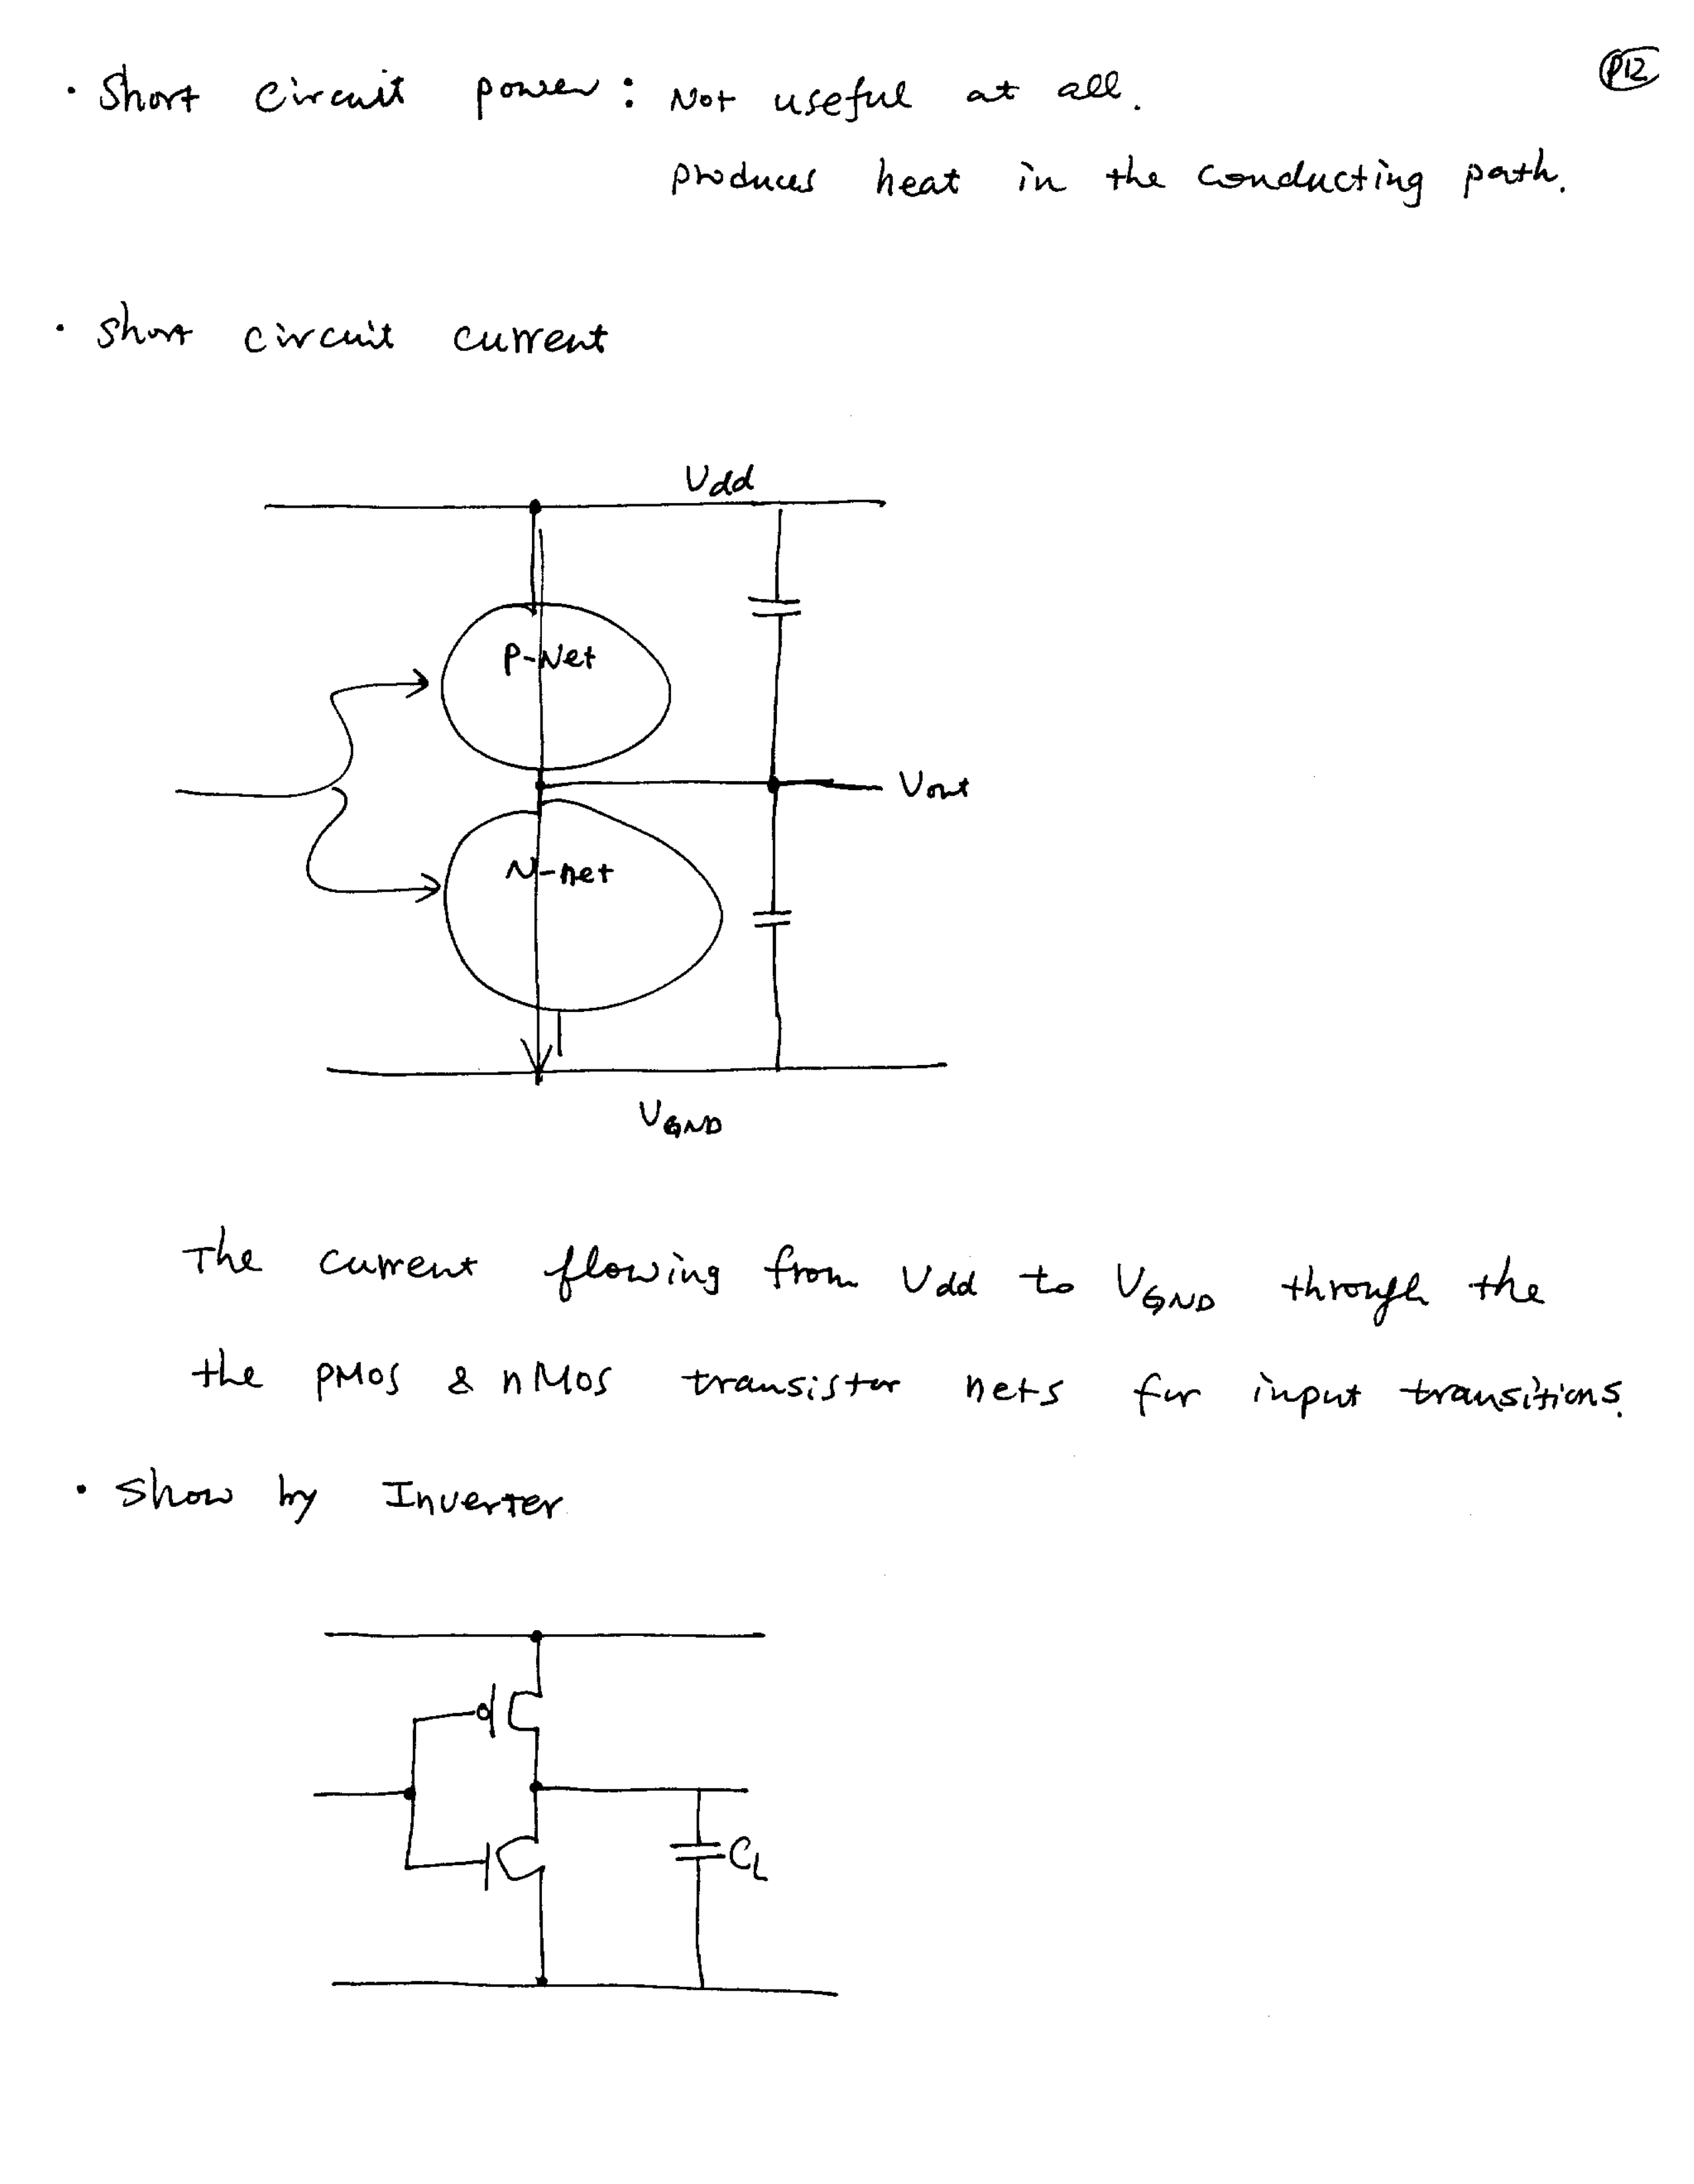 P12
• Short circuit power : Not useful at all.
produces heat in the conducting path.
• Short circuit current
Vdd
P-Net
Vout
N-net
VGND
The current flowing from Vdd to VGND through the
the pMOS & nMOS transistor nets for input transitions.
• Show by Inverter
CL